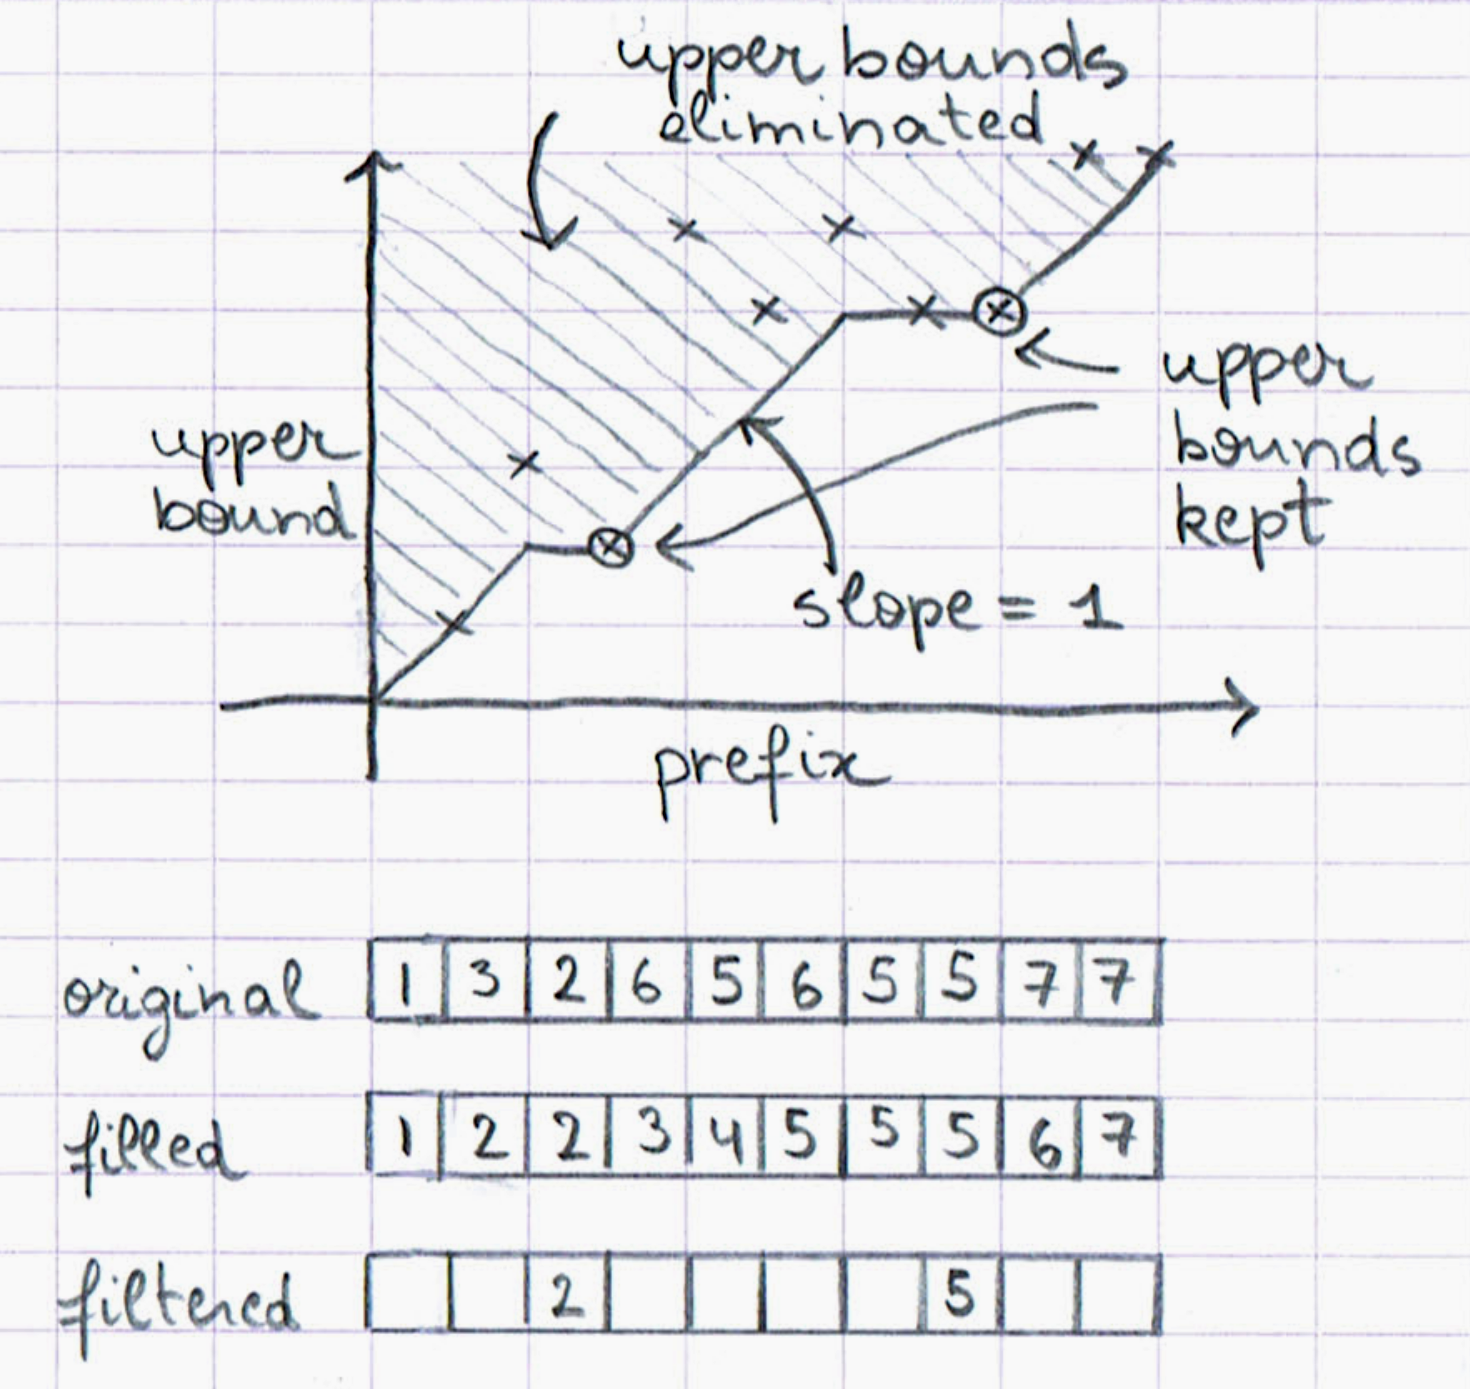 upper bounds
eliminated
upper
bound
upper
bounds
kept
slope = 1
prefix
original 1 3 2 6 5 6 5 5 7 7
filled 1 2 2 3 4 5 5 5 6 7
filtered 2 5